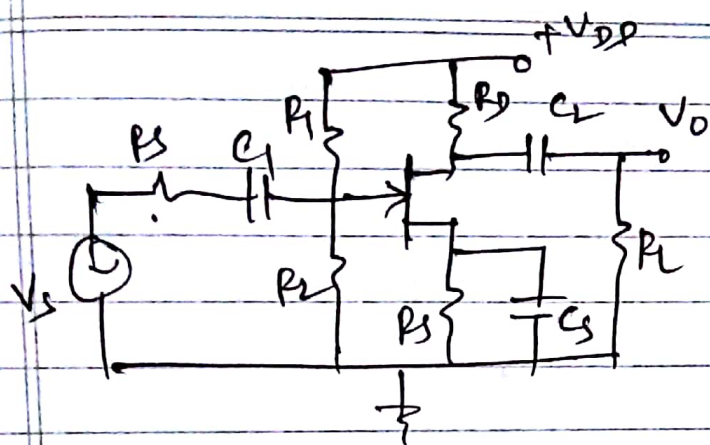 +VDD
R1
RD
C2
VO
RS
C1
VS
R2
RS
CS
RL